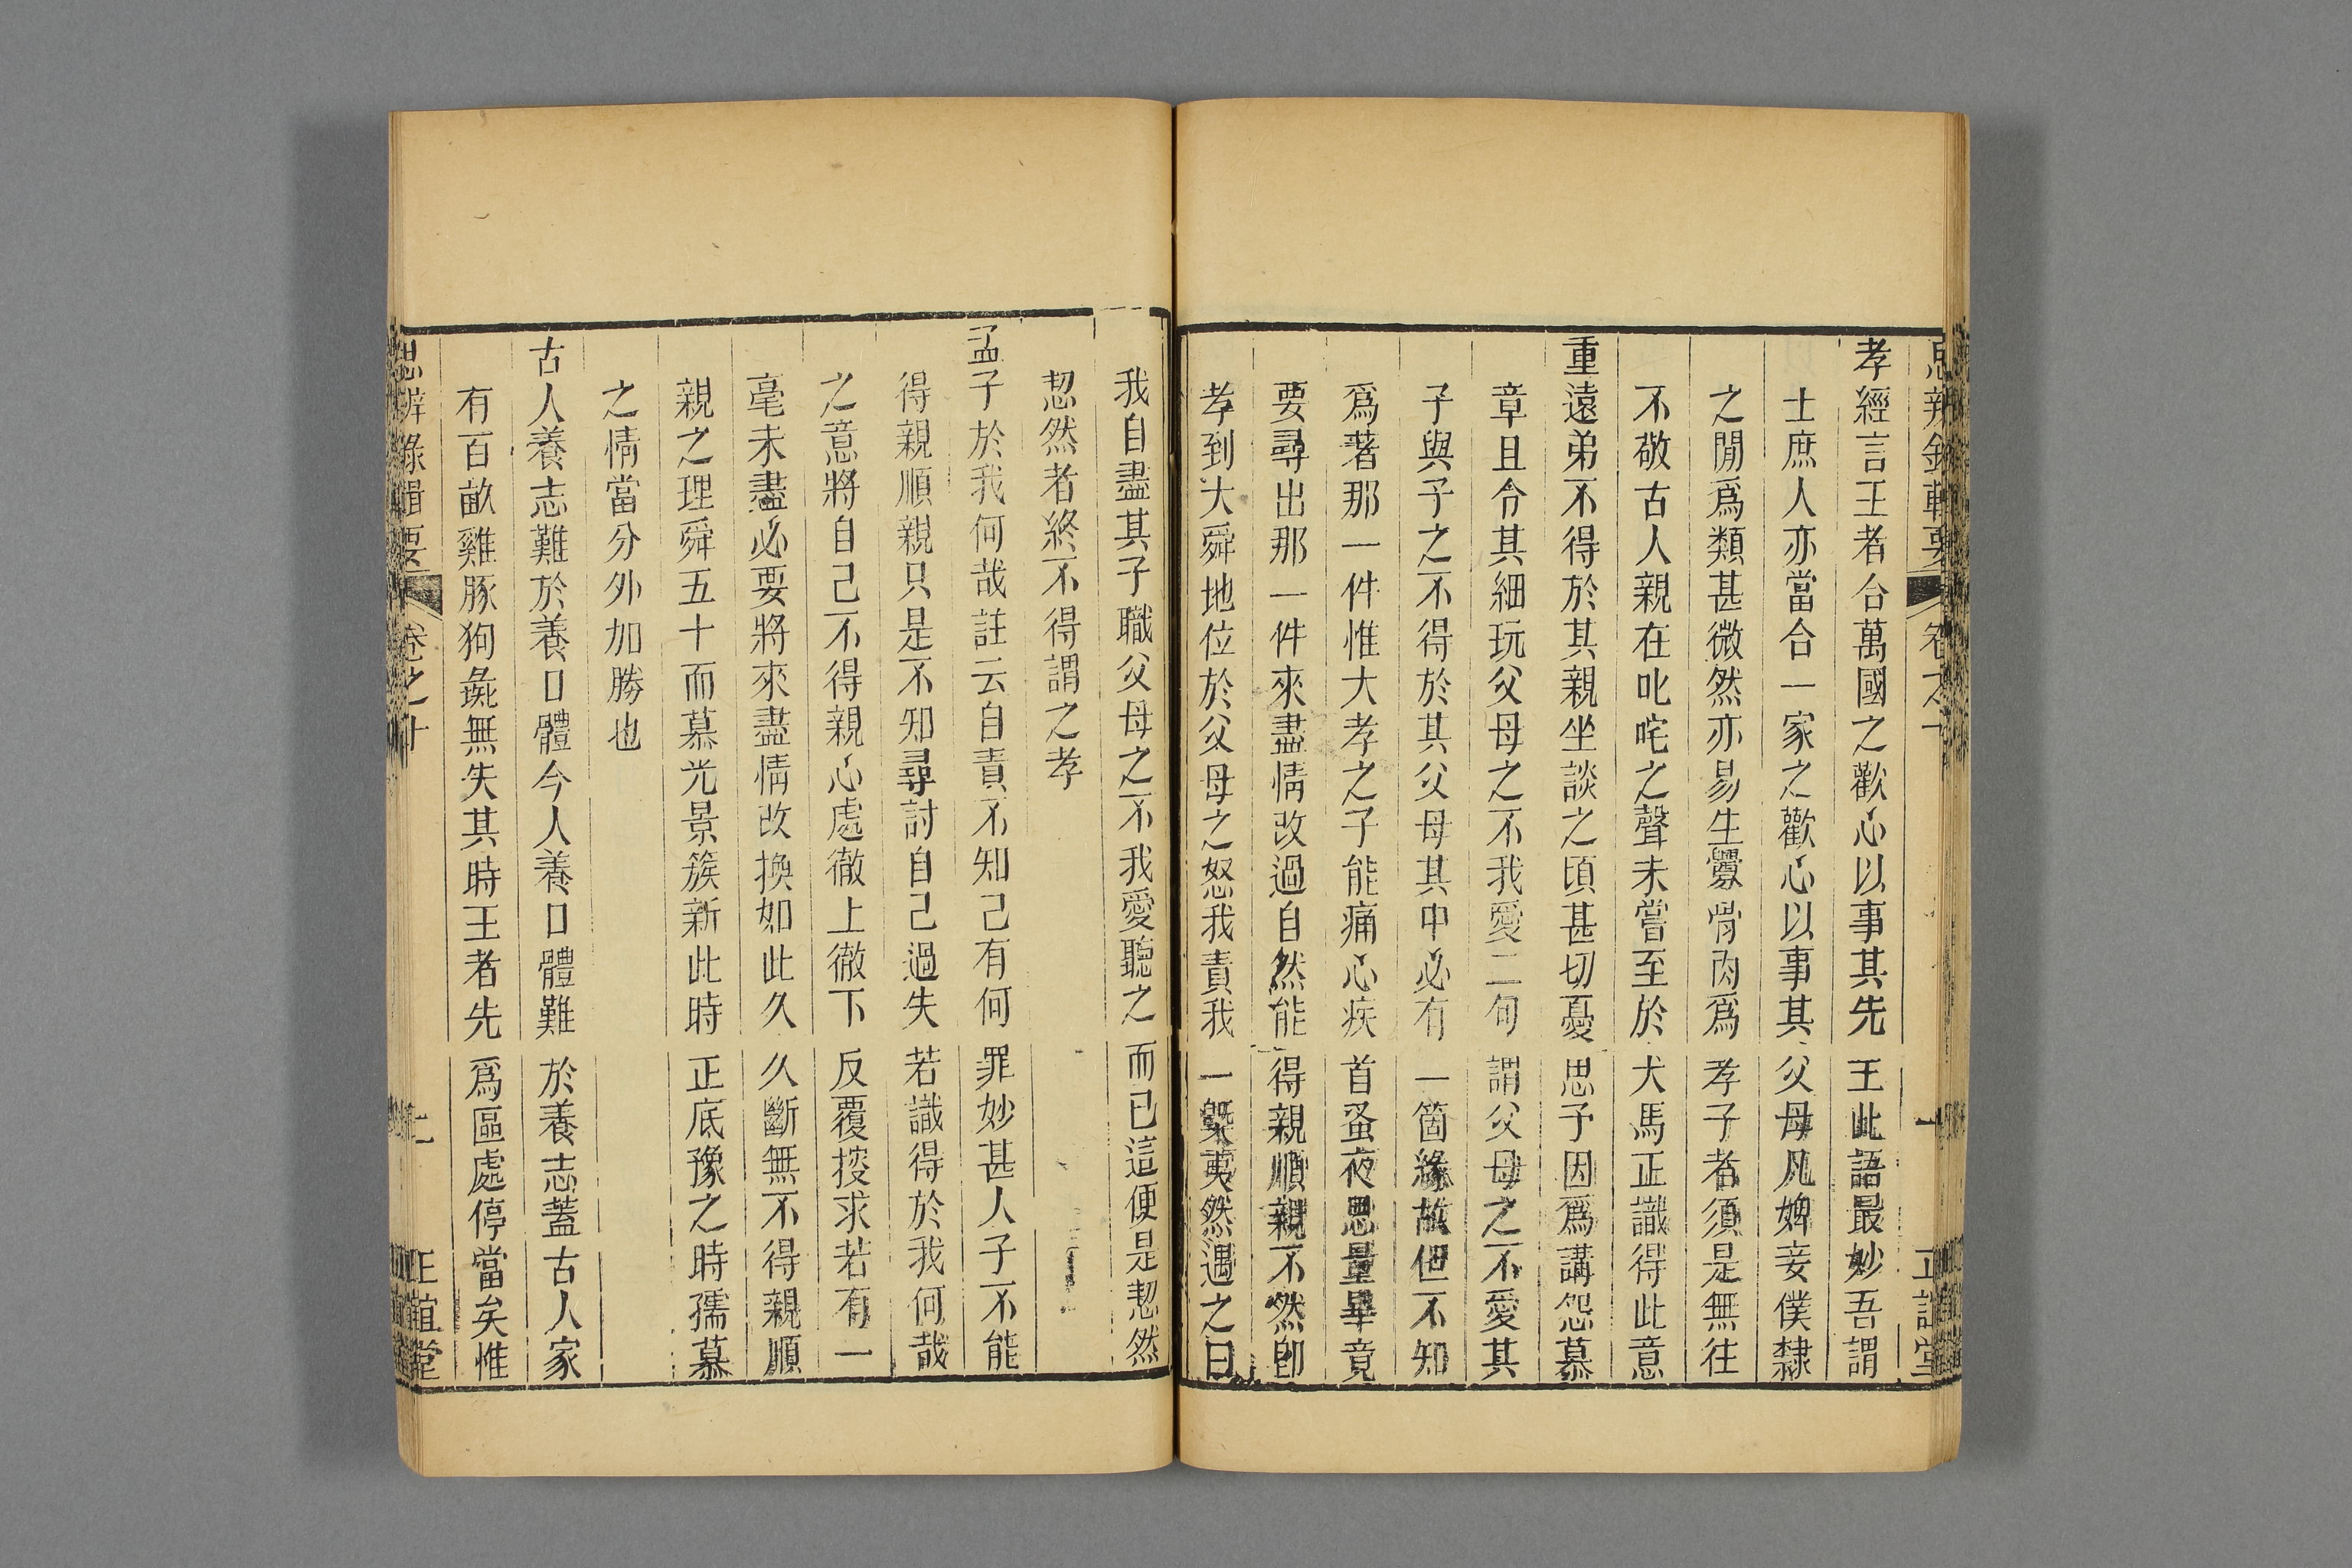 思辨錄輯要
卷之十
正誼堂
孝經言王者合萬國之歡心以事其先王此語最妙吾謂
士庶人亦當合一家之歡心以事其父母凡婢妾僕隸
之閒爲類甚微然亦易生釁骨肉爲孝子者須是無往
不敬古人親在叱咤之聲未嘗至於犬馬正識得此意
重遠弟不得於其親坐談之頃甚切憂思予因爲講怨慕
章且令其細玩父母之不我愛二句謂父母之不愛其
子與子之不得於其父母其中必有一箇緣故但不知
爲著那一件惟大孝之子能痛心疾首蚤夜思量畢竟
要尋出那一件來盡情改過自然能得親順親不然卽
孝到大舜地位於父母之怒我責我一槩夷然遇之曰
我自盡其子職父母之不我愛聽之而已這便是恝然
恝然者終不得謂之孝
孟子於我何哉註云自責不知己有何罪妙甚人子不能
得親順親只是不知尋討自己過失若識得於我何哉
之意將自己不得親心處徹上徹下反覆按求若有一
毫未盡必要將來盡情改換如此久久斷無不得親順
親之理舜五十而慕光景簇新此時正底豫之時孺慕
之情當分外加勝也
古人養志難於養口體今人養口體難於養志蓋古人家
有百畝雞豚狗彘無失其時王者先爲區處停當矣惟
思辨錄輯要
卷之十
正誼堂